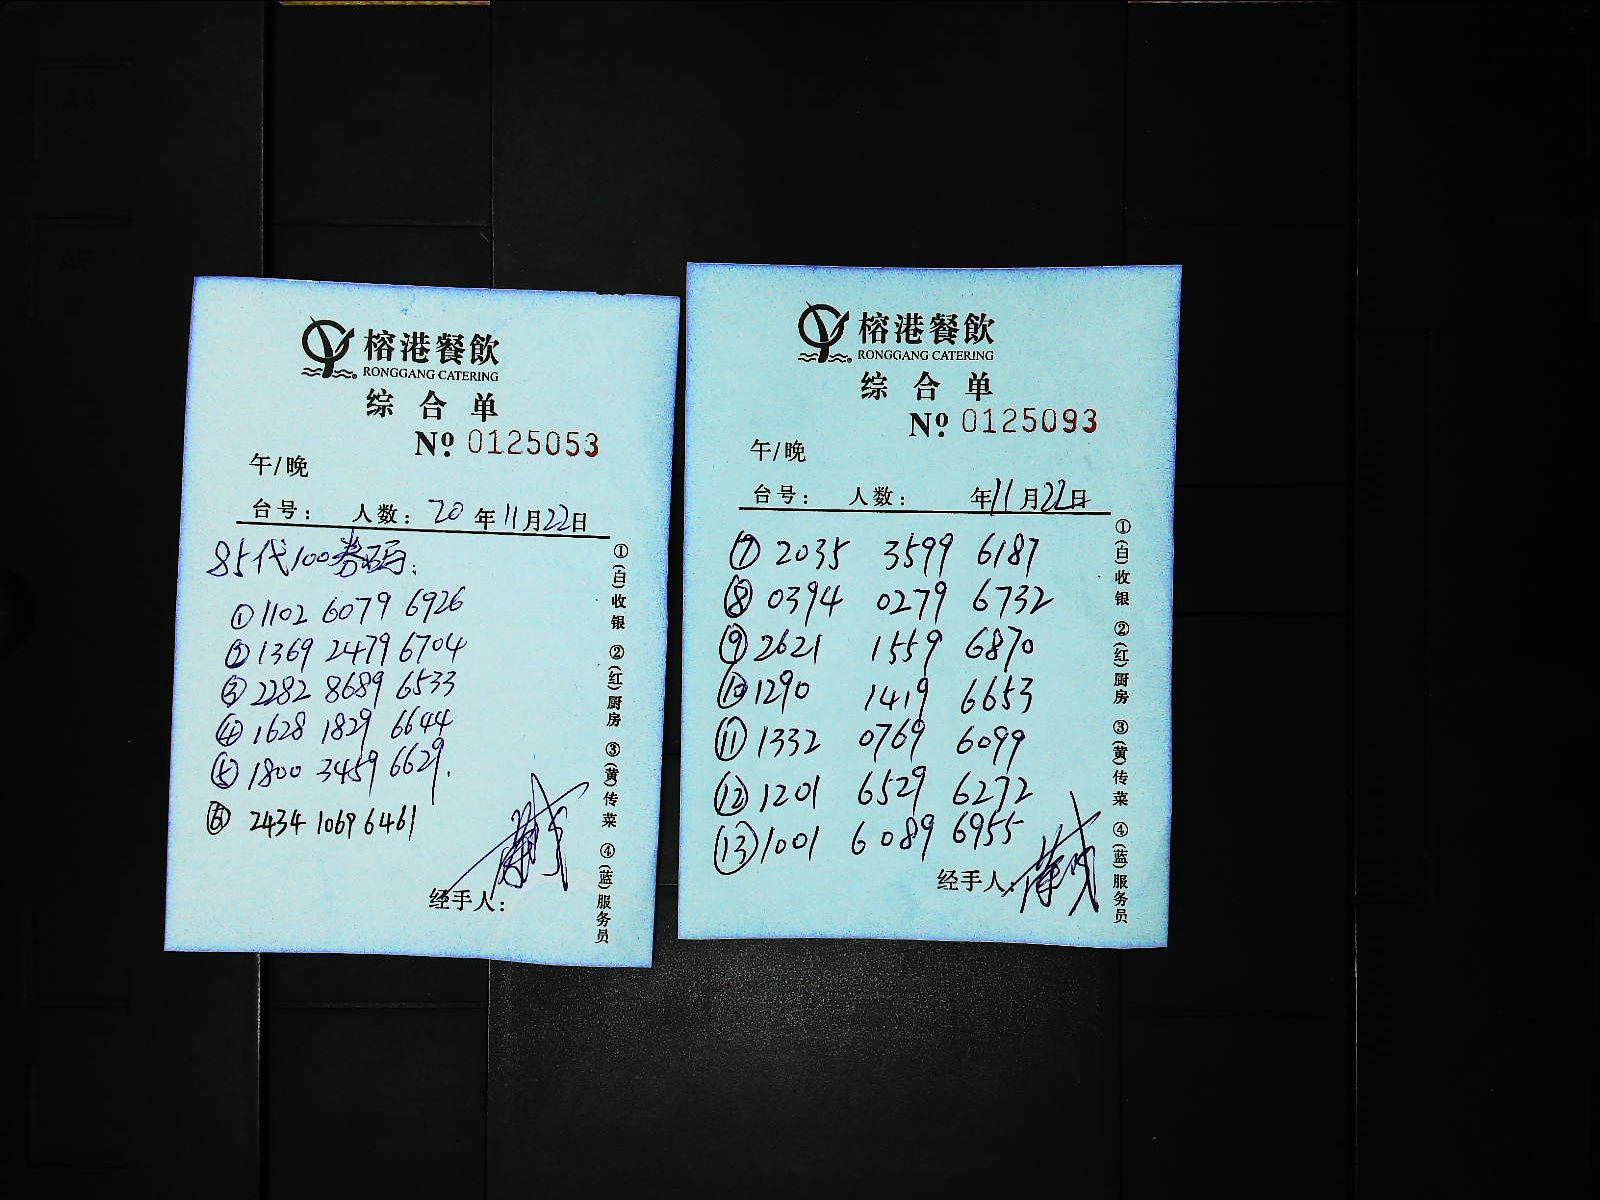 榕港餐飲
RONGGANG CATERING
综合单
Nº 0125053
午/晚
台号： 人数： 20年11月22日
85代100券码：
①1102 6079 6926
②1369 2479 6704
③2282 8689 6533
④1628 1829 6644
⑤1800 3459 6629.
⑥ 2434 1069 6461
经手人：
①(白)收银 ②(红)厨房 ③(黄)传菜 ④(蓝)服务员
榕港餐飲
RONGGANG CATERING
综合单
Nº 0125093
午/晚
台号： 人数： 年11月22日
⑦ 2035 3599 6187
⑧ 0394 0279 6732
⑨ 2621 1559 6870
⑩ 1290 1419 6653
⑪ 1332 0769 6099
⑫ 1201 6529 6272
⑬ 1001 6089 6955
经手人：
①(白)收银 ②(红)厨房 ③(黄)传菜 ④(蓝)服务员